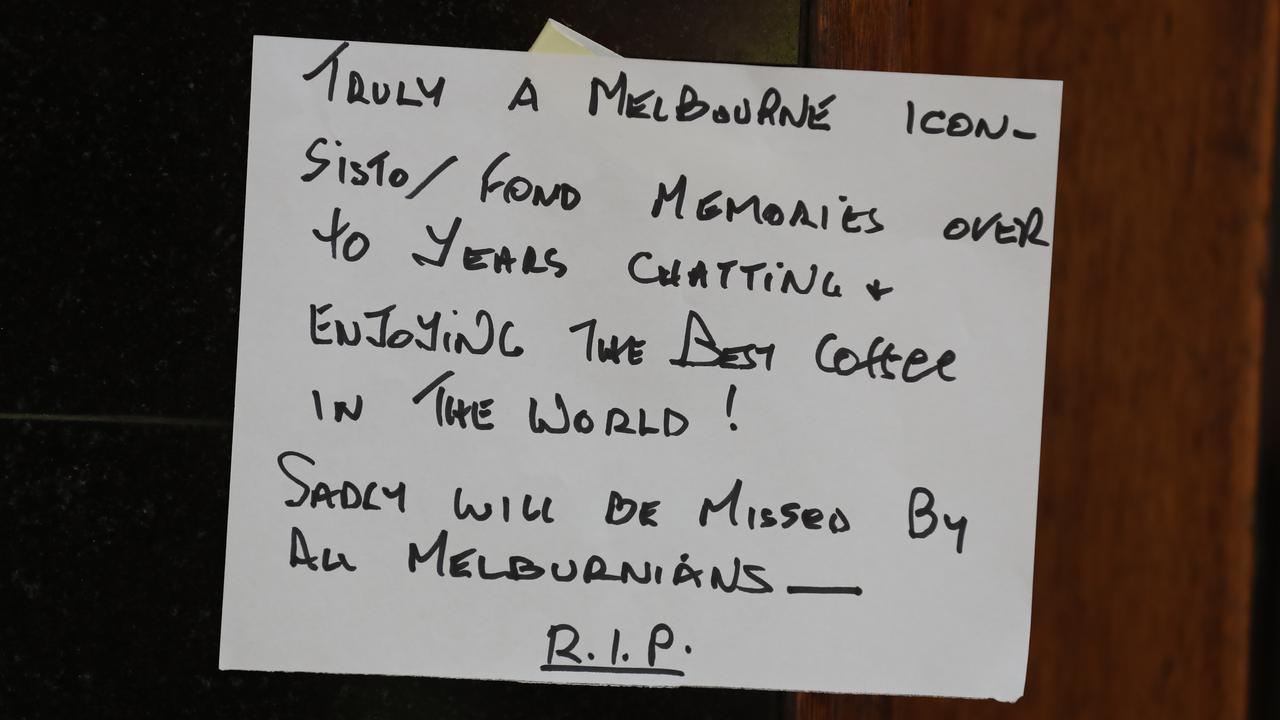 TRULY A MELBOURNE ICON-
SISTO/ FOND MEMORIES OVER
40 YEARS CHATTING +
ENJOYING THE BEST Coffee
IN THE WORLD !
SADLY WILL BE MISSED BY
ALL MELBURNIANS—
R.I.P.